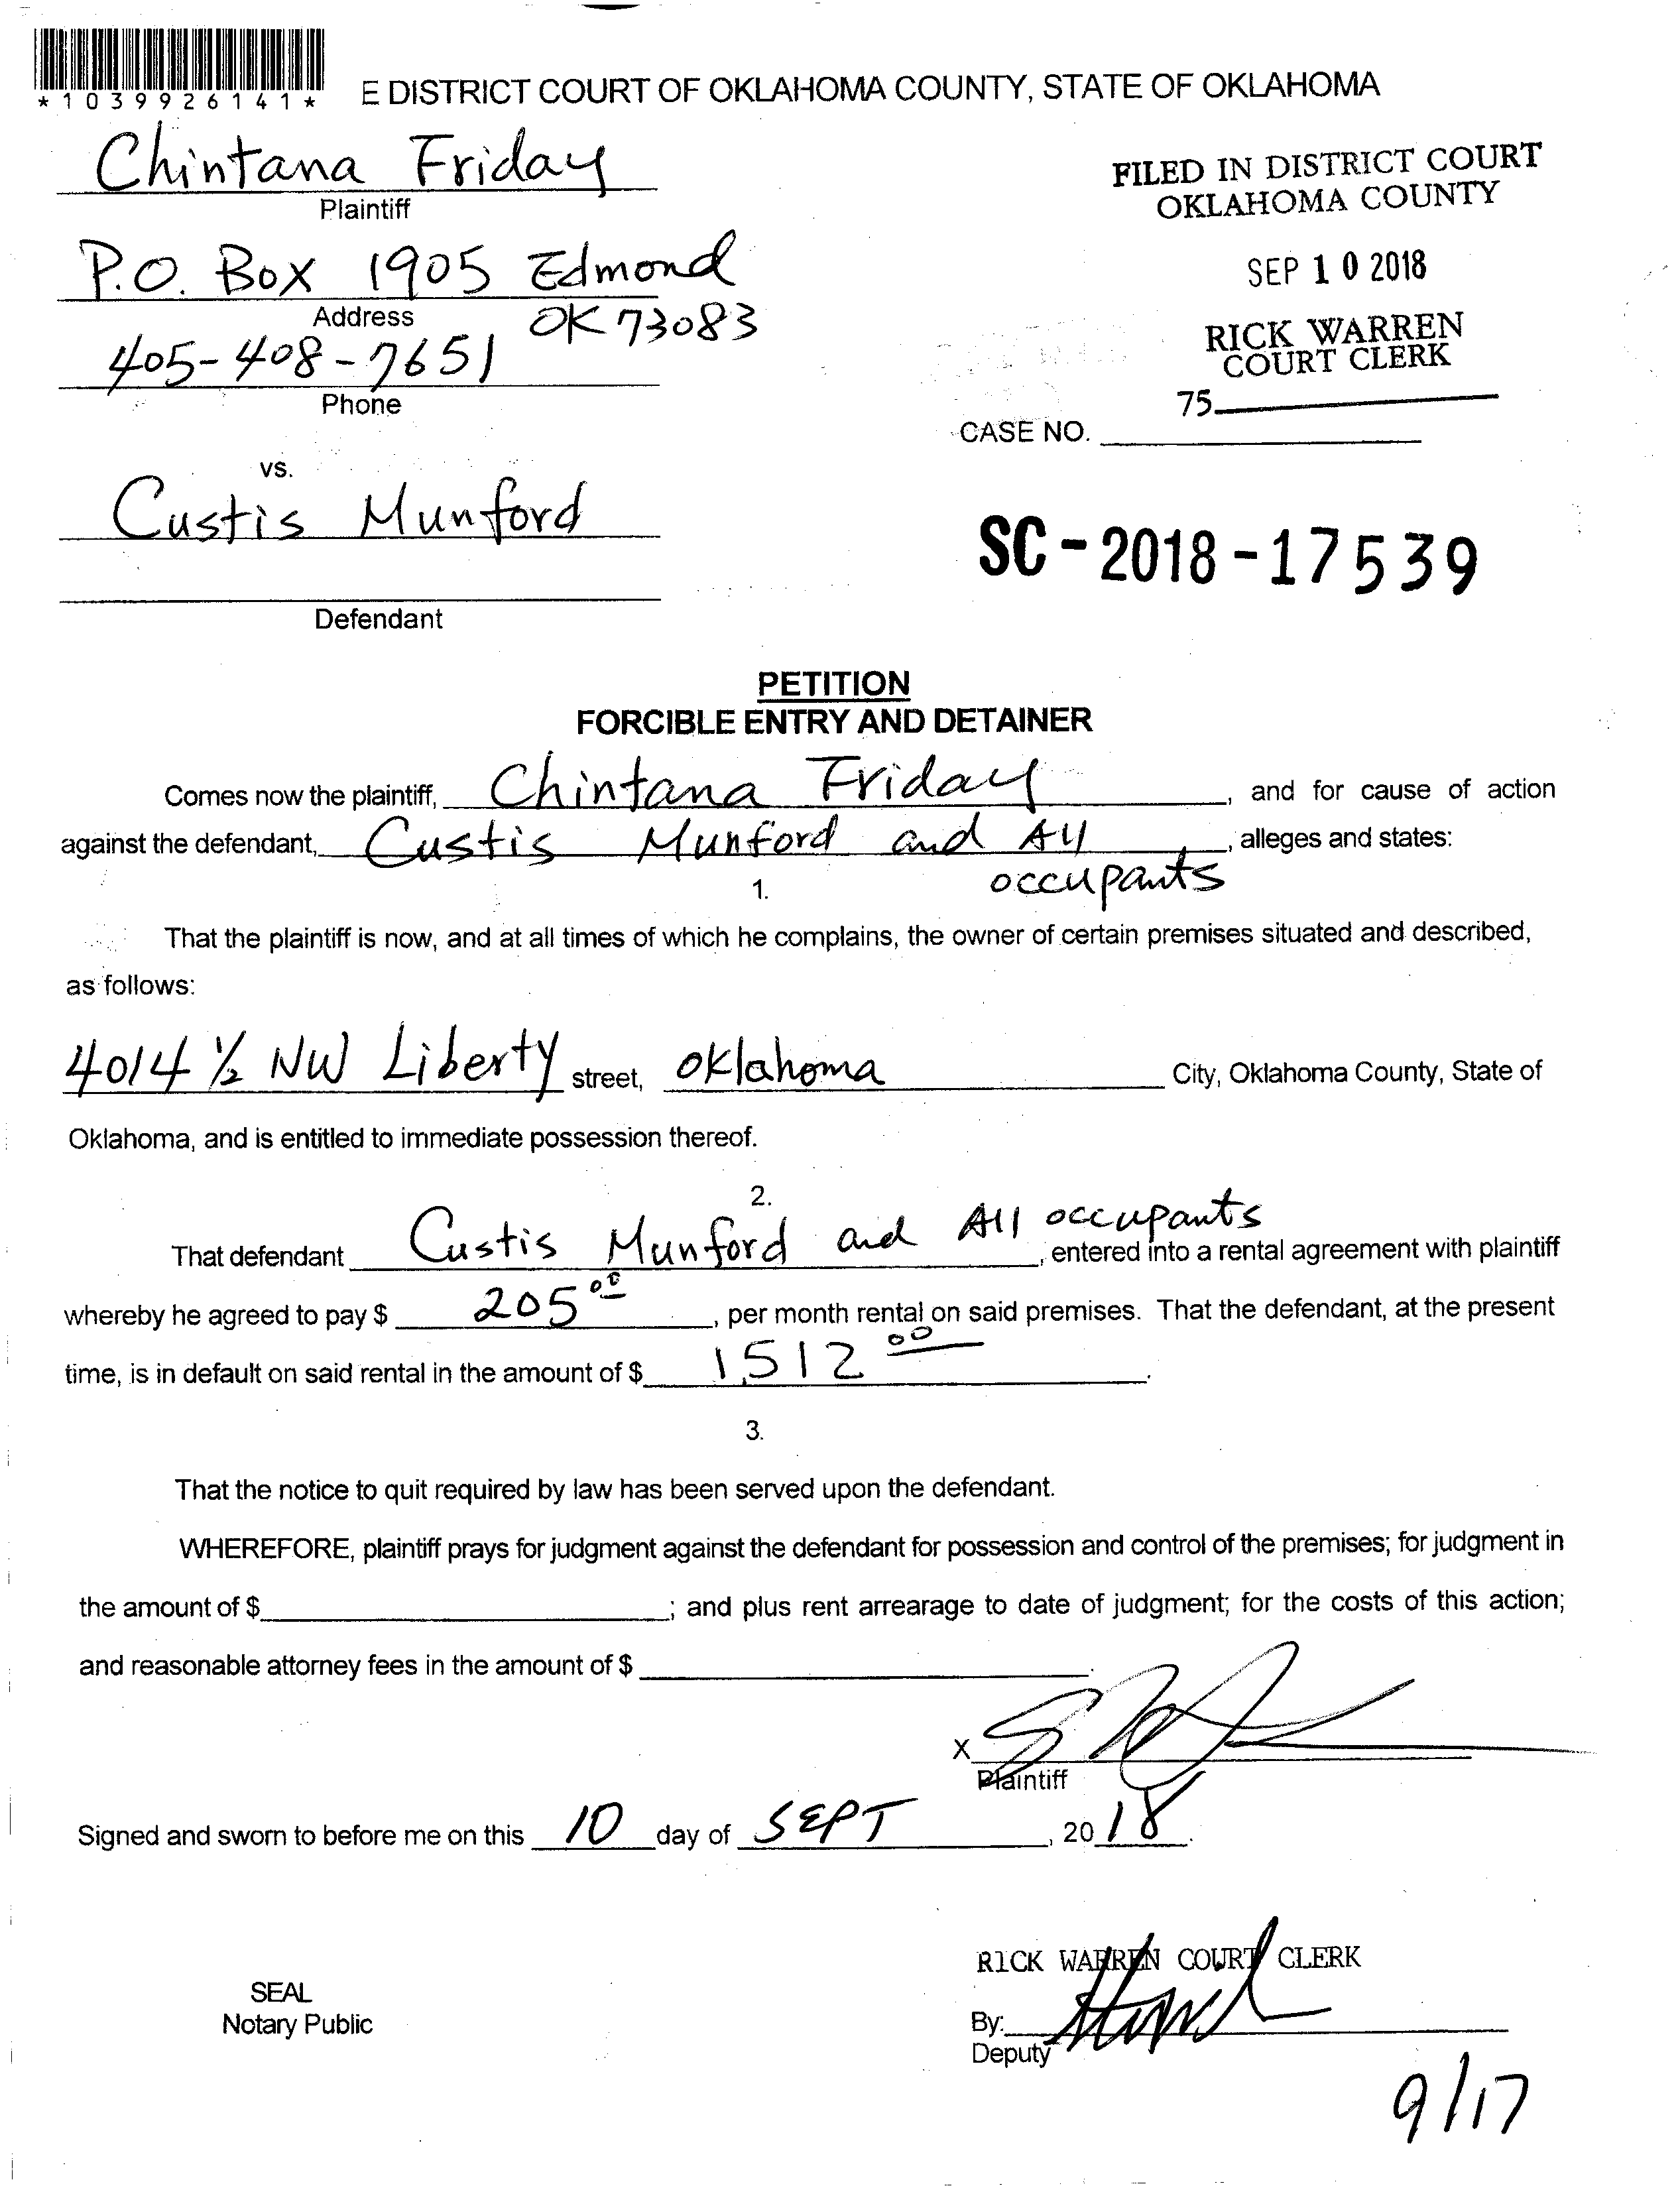 *1039926141*
E DISTRICT COURT OF OKLAHOMA COUNTY, STATE OF OKLAHOMA
Chintana Friday
Plaintiff
P.O. Box 1905 Edmond
Address
OK 73083
405-408-7651
Phone
FILED IN DISTRICT COURT
OKLAHOMA COUNTY
SEP 10 2018
RICK WARREN
COURT CLERK
75
CASE NO.
vs.
Custis Munford
Defendant
SC-2018-17539
PETITION
FORCIBLE ENTRY AND DETAINER
Comes now the plaintiff, Chintana Friday, and for cause of action
against the defendant, Custis Munford and All, alleges and states:
occupants
1.
That the plaintiff is now, and at all times of which he complains, the owner of certain premises situated and described,
as follows:
4014 ½ NW Liberty street, Oklahoma City, Oklahoma County, State of
Oklahoma, and is entitled to immediate possession thereof.
2.
That defendant Custis Munford and All occupants, entered into a rental agreement with plaintiff
whereby he agreed to pay $ 205 00, per month rental on said premises. That the defendant, at the present
time, is in default on said rental in the amount of $ 1,512 00.
3.
That the notice to quit required by law has been served upon the defendant.
WHEREFORE, plaintiff prays for judgment against the defendant for possession and control of the premises; for judgment in
the amount of $; and plus rent arrearage to date of judgment; for the costs of this action;
and reasonable attorney fees in the amount of $.
X
Plaintiff
Signed and sworn to before me on this 10 day of SEPT, 2018.
RICK WARREN COURT CLERK
SEAL
Notary Public
By:
Deputy
9/17